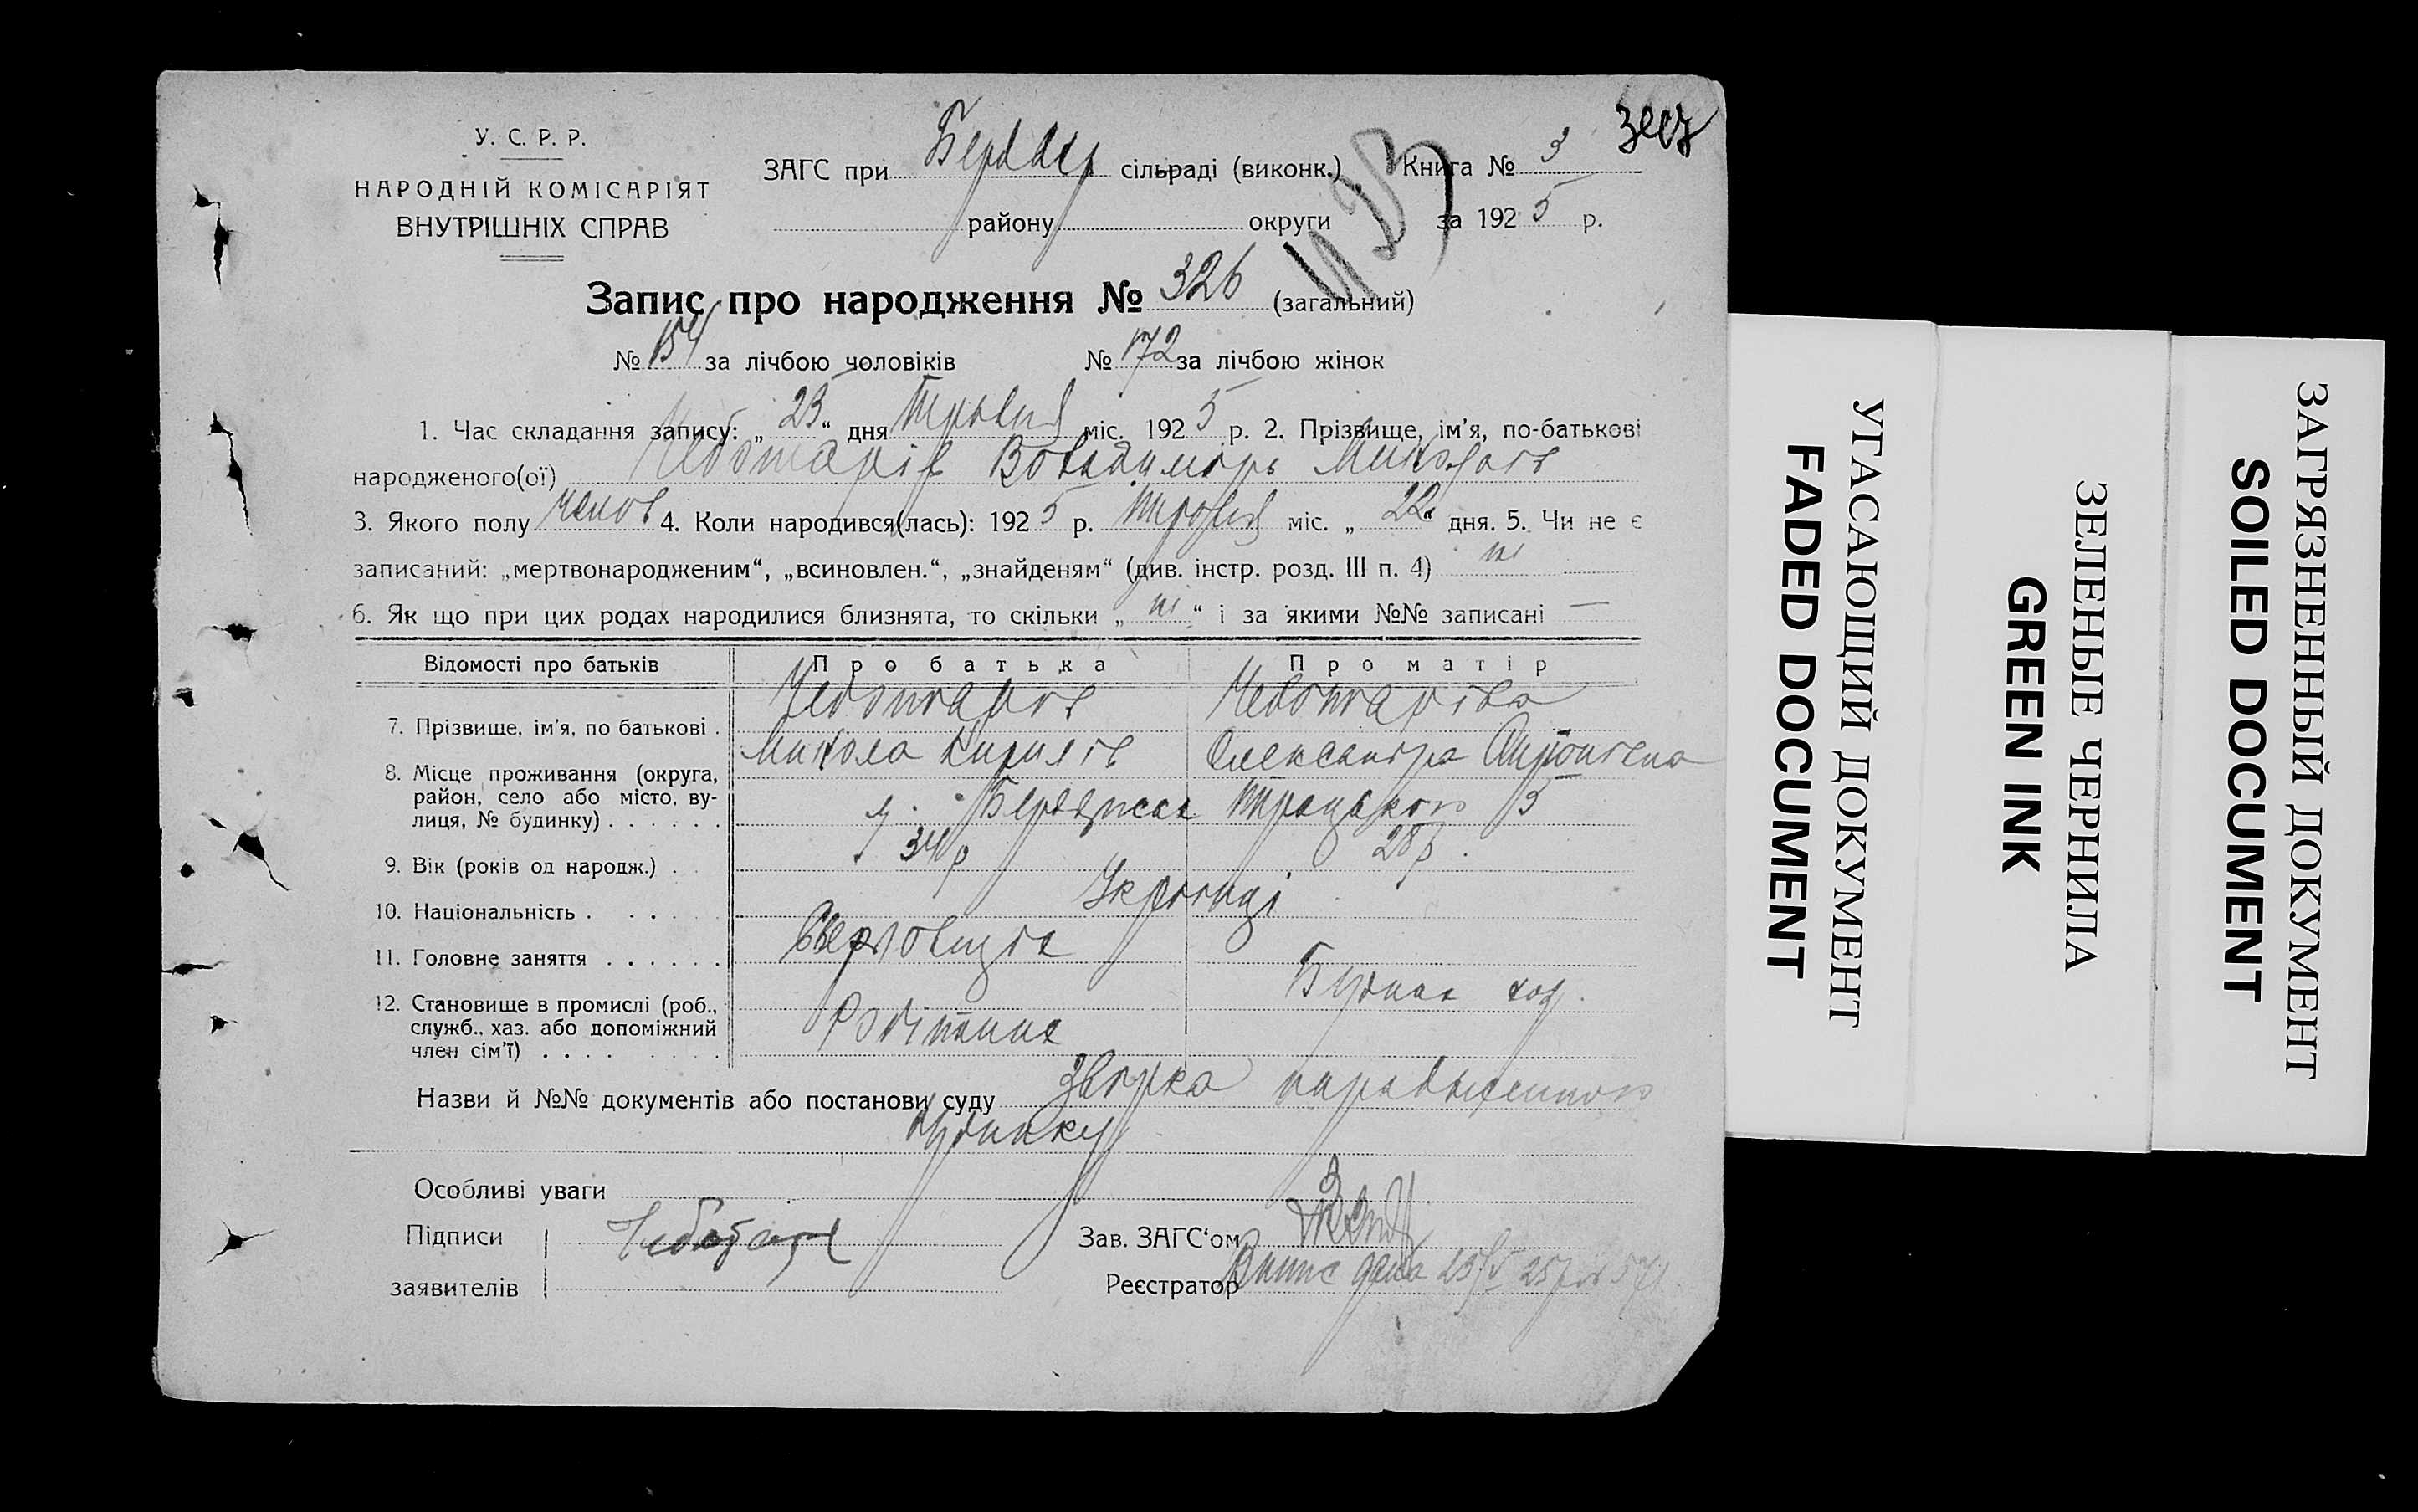 У. С. Р. Р.
НАРОДНІЙ КОМІСАРІЯТ
ВНУТРІШНІХ СПРАВ
ЗАГС при сільраді (виконк.) Книга № 3
району округи за 1925 р.
Запис про народження № 326 (загальний)
№ 154 за лічбою чоловіків № 172 за лічбою жінок
1. Час складання запису: „ 23 “ дня Травня міс. 1925 р. 2. Прізвище, ім'я, по-батькові
народженого(ої) Чеботарів Володимиръ Миколаєв
3. Якого полу челов 4. Коли народився(лась): 1925 р. Травня міс. „ 22 “ дня. 5. Чи не є
записаний: „мертвонародженим“, „всиновлен.“, „знайденям“ (див. інстр. розд. III п. 4) ні
6. Як що при цих родах народилися близнята, то скільки „ ні “ і за якими №№ записані —
Відомості про батьків Про батька Про матір
7. Прізвище, ім'я, по батькові . Чеботарів Чеботаріва
Микола Кирилів Олександра
8. Місце проживання (округа,
район, село або місто, ву-
лиця, № будинку) . . . . . . 5
9. Вік (років од народж.) . . 34 р 28 р.
10. Національність . . . . Українці
11. Головне заняття . . . . . .
Будинк хоз.
12. Становище в промислі (роб.,
служб., хаз. або допоміжний
член сім'ї) . . . . . . . . Робітник
Назви й №№ документів або постанови суду
будинку
Особливі уваги
Підписи Зав. ЗАГС'ом
заявителів Реєстратор
ЗАГРЯЗНЕННЫЙ ДОКУМЕНТ
SOILED DOCUMENT
ЗЕЛЕНЫЕ ЧЕРНИЛА
GREEN INK
УГАСАЮЩИЙ ДОКУМЕНТ
FADED DOCUMENT